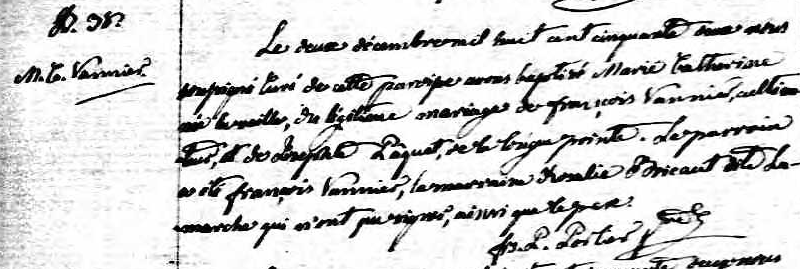 B. 38.
M. C. Vannier.
Le deux décembre mil huit cent cinquante deux nous
soussigné Curé de cette paroisse avons baptisé Marie Catherine
née la veille, du légitime mariage de françois Vannier, cultiva-
teur, et de Josephte Paquet, de la longue pointe. Le parrain
a été françois Vannier, la marraine Rosalie Bricaut dite La-
marche qui n'ont pu signer, ainsi que le père.
deux nous